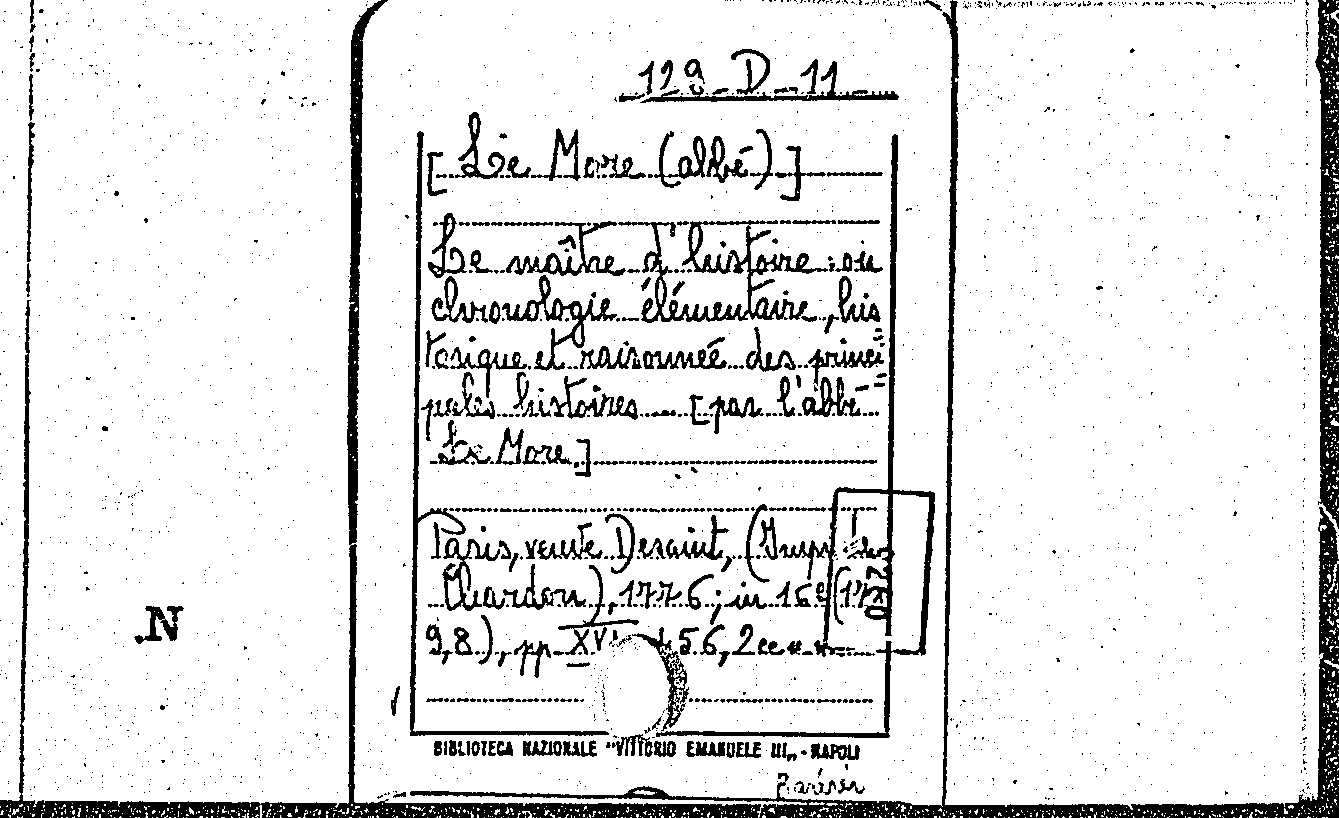 129-D-11
[Le More (abbé)]
Le maître d'histoire: ou
chronologie élémentaire, his
torique et raisonneé des princi
pales histoires ... [par l'abbé
Le More.]
Paris, veuve Desaint, (Impr
Chardon), 1776; in 16º (17x
9,8), pp XVI 456, 2
.N
BIBLIOTECA NAZIONALE "VITTORIO EMANUELE III„ - NAPOLI